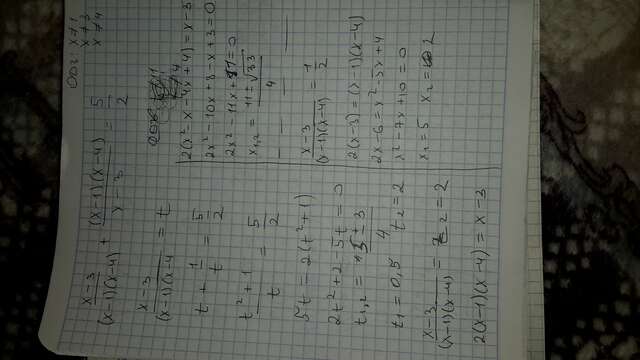 ОДЗ: x≠1
x≠3
x≠4
x-3/(x-1)(x-4) + (x-1)(x-4)/x-3 = 5/2
x-3/(x-1)(x-4 = t
t + 1/t = 5/2
t²+1/t = 5/2
5t = 2(t²+1)
2t²+2-5t=0
t₁,₂ = 5±3/4
t₁ = 0,5 t₂ = 2
x-3/(x-1)(x-4) = 2
2(x-1)(x-4) = x-3
2(x²-x-4x+4)=x-3
2x²-10x+8-x+3=0
2x²-11x+11=0
x₁,₂ = 11±√33/4
x-3/(x-1)(x-4) = 1/2
2(x-3)=(x-1)(x-4)
2x-6=x²-5x+4
x²-7x+10=0
x₁=5 x₂=2